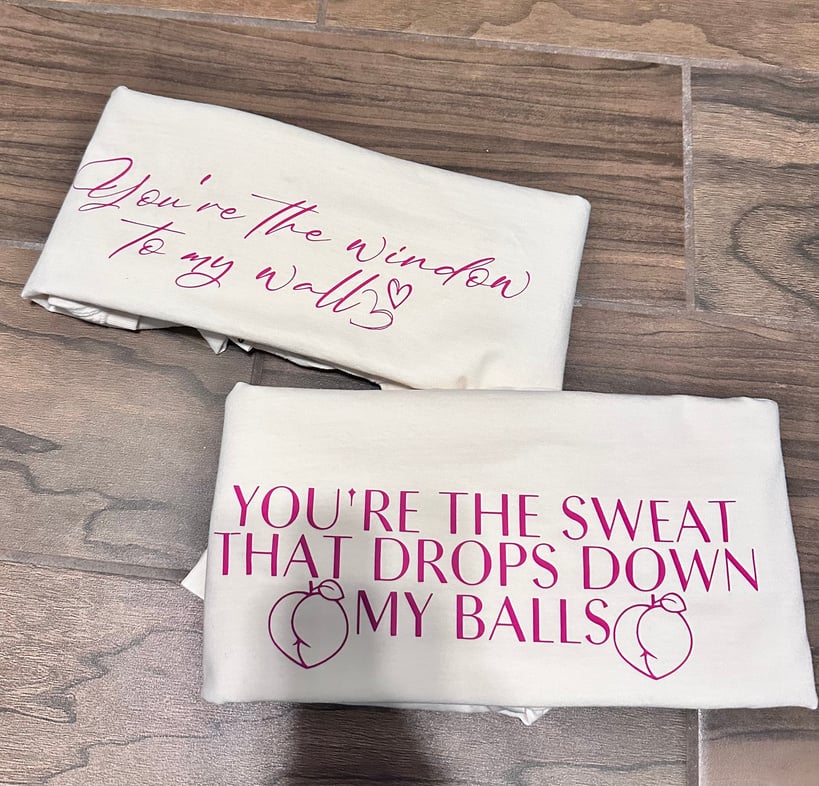 You're the window
to my walls
YOU'RE THE SWEAT
THAT DROPS DOWN
MY BALLS